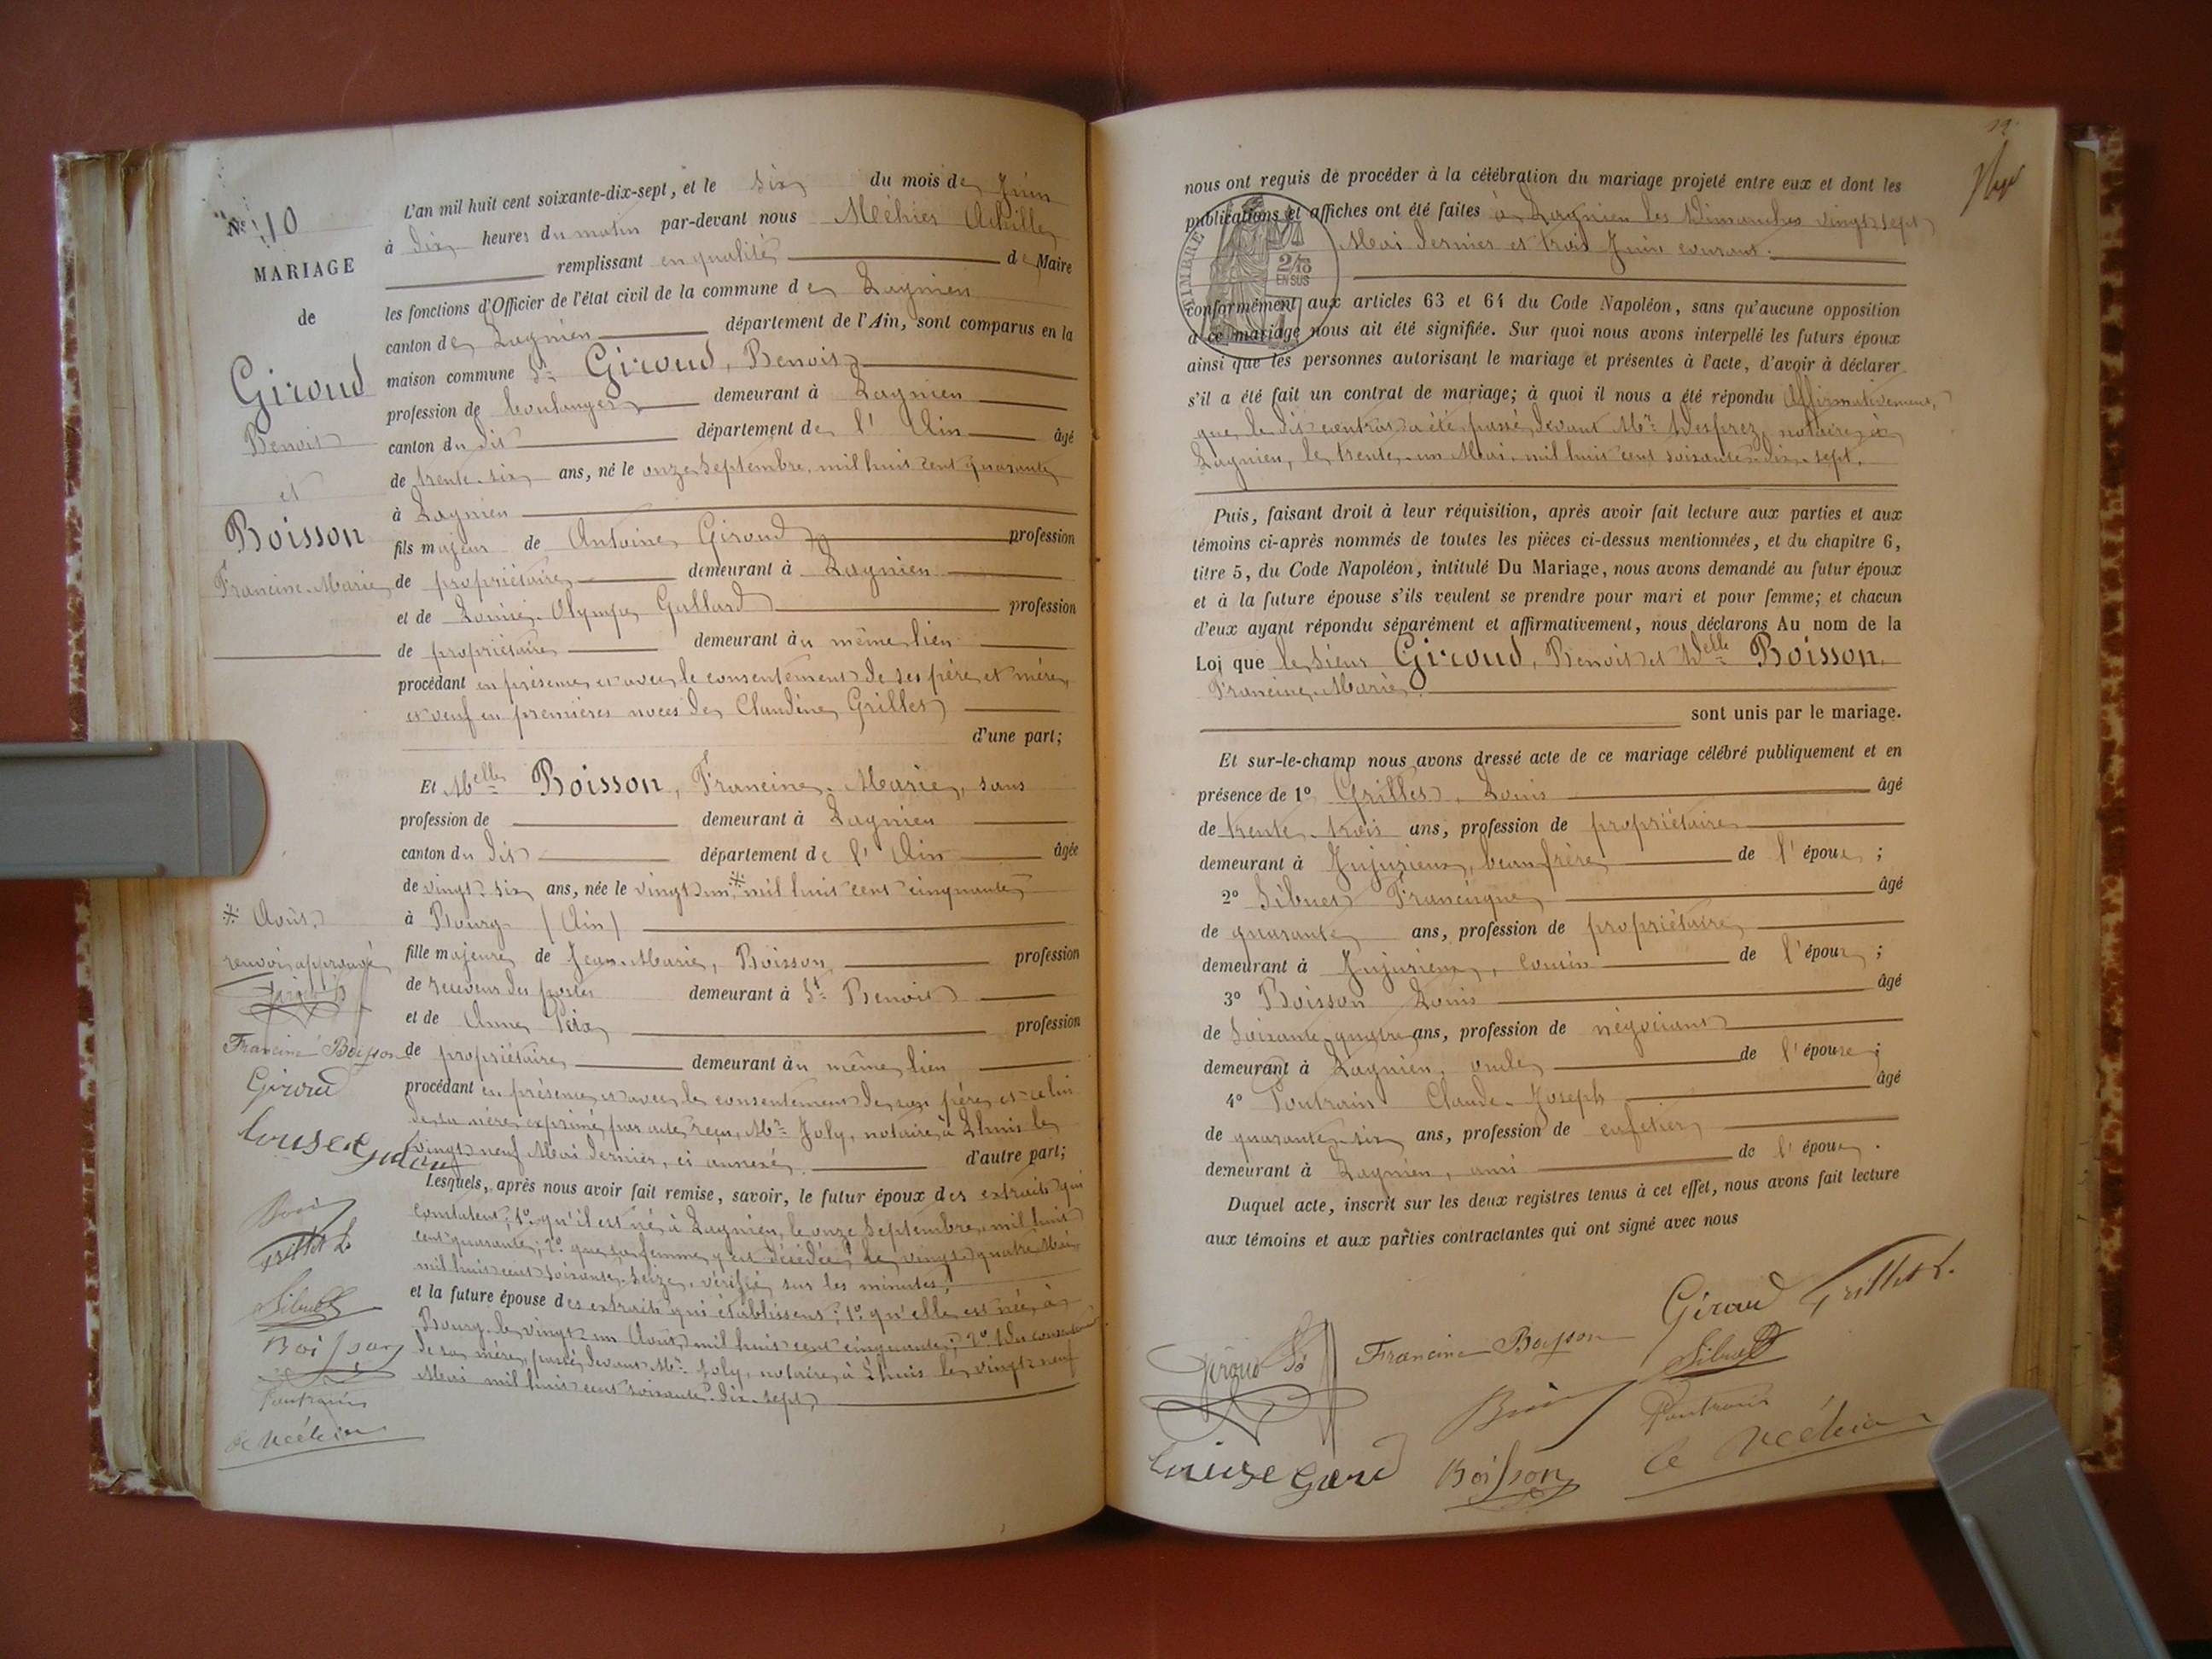 N° 10
MARIAGE
de
Giroud
Benoit
et
Boisson
Francine-Marie
L'an mil huit cent soixante-dix-sept, et le six du mois de Juin
à dix heures du matin par-devant nous Méhier Achille
remplissant en qualité de Maire
les fonctions d'Officier de l'état civil de la commune de Lagnieu
canton de Lagnieu département de l'Ain, sont comparus en la
maison commune Sr Giroud, Benoit
profession de boulanger demeurant à Lagnieu
canton du dit département de l'Ain âgé
de trente-six ans, né le onze Septembre, mil huit cent quarante
à Lagnieu
fils majeur de Antoine Giroud profession
de propriétaire demeurant à Lagnieu
et de Louise-Olympe Gallard profession
de propriétaire demeurant au même lieu
procédant en présence et avec le consentement de ses père et mère,
et veuf en premières noces de Claudine Grillet
d'une part;
Et Melle Boisson, Francine-Marie, sans
profession de demeurant à Lagnieu
canton du dit département de l'Ain âgée
de vingt-six ans, née le vingt un * mil huit cent cinquante
à Bourg (Ain)
fille majeure de Jean-Marie, Boisson profession
de receveur des postes demeurant à St Benoit
et de Anne Peix profession
de propriétaire demeurant au même lieu
procédant en présence et avec le consentement de son père, et celui
de sa mère exprimé par acte reçu, Mr Joly, notaire, à Lhuis le
vingt neuf Mai dernier, ci annexé. d'autre part;
Lesquels, après nous avoir fait remise, savoir, le futur époux des extraits qui
constatent; 1° qu'il est né à Lagnieu, le onze Septembre, mil huit
cent quarante; 2° que sa femme y est décédée, le vingt quatre Mai,
mil huit cent soixante-seize, vérifié, sur les minutes,
et la future épouse des extraits qui établissent; 1° qu'elle est née à
Bourg, le vingt un Août, mil huit cent cinquante; 2° du consentement
de sa mère, passé devant Mr Joly, notaire, à Lhuis le vingt neuf
Mai mil huit cent soixante-dix-sept
* Août
renvoi approuvé
Francine Boisson
Giroud
Louise
Grillet L.
Sibuet
Boisson
Poutrain
A. Méhier
nous ont requis de procéder à la célébration du mariage projeté entre eux et dont les
publications et affiches ont été faites à Lagnieu les Dimanches vingt sept
Mai dernier et trois Juin courant.
TIMBRE
2/10
EN SUS
conformément aux articles 63 et 64 du Code Napoléon, sans qu'aucune opposition
à ce mariage nous ait été signifiée. Sur quoi nous avons interpellé les futurs époux
ainsi que les personnes autorisant le mariage et présentes à l'acte, d'avoir à déclarer
s'il a été fait un contrat de mariage; à quoi il nous a été répondu affirmativement,
que le dit contrat a été passé devant Mr Desprez, notaire, à
Lagnieu, le trente-un Mai, mil huit cent soixante-dix-sept.
Puis, faisant droit à leur réquisition, après avoir fait lecture aux parties et aux
témoins ci-après nommés de toutes les pièces ci-dessus mentionnées, et du chapitre 6,
titre 5, du Code Napoléon, intitulé Du Mariage, nous avons demandé au futur époux
et à la future épouse s'ils veulent se prendre pour mari et pour femme; et chacun
d'eux ayant répondu séparément et affirmativement, nous déclarons Au nom de la
Loi que le sieur Giroud, Benoit et Delle Boisson,
Francine-Marie,
sont unis par le mariage.
Et sur-le-champ nous avons dressé acte de ce mariage célébré publiquement et en
présence de 1° Grillet, Louis âgé
de trente-trois ans, profession de propriétaire
demeurant à Jujurieux, beau frère de l'époux;
2° Sibuet Francisque âgé
de quarante ans, profession de propriétaire
demeurant à Jujurieux, cousin de l'époux;
3° Boisson Louis âgé
de Soixante quatre ans, profession de négociant
demeurant à Lagnieu, oncle de l'épouse;
4° Poutrain Claude-Joseph âgé
de quarante-six ans, profession de cafetier
demeurant à Lagnieu, ami de l'époux.
Duquel acte, inscrit sur les deux registres tenus à cet effet, nous avons fait lecture
aux témoins et aux parties contractantes qui ont signé avec nous
Giroud Grillet L.
Giroud Francine Boisson Sibuet
Poutrain
Louise Boisson A. Méhier